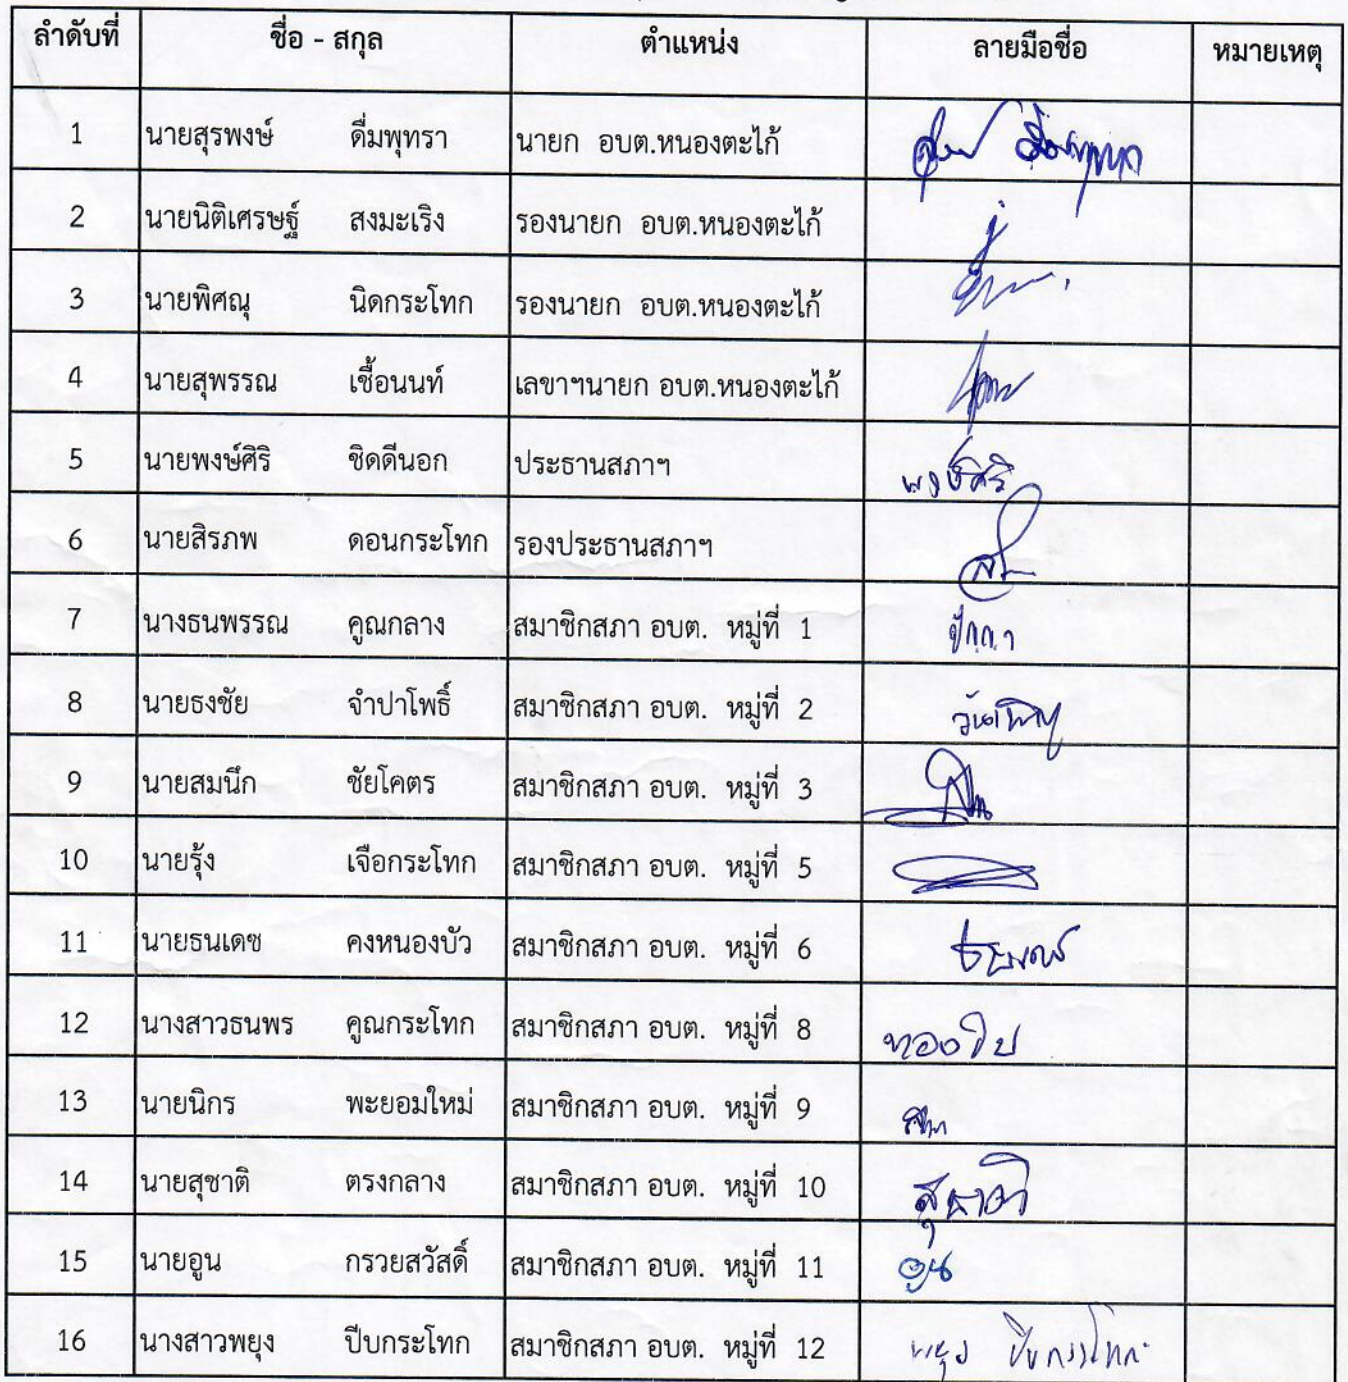 ลำดับที่ ชื่อ - สกุล ตำแหน่ง ลายมือชื่อ หมายเหตุ
1 นายสุรพงษ์ ดื่มพุทรา นายก อบต.หนองตะไก้
2 นายนิติเศรษฐ์ สงมะเริง รองนายก อบต.หนองตะไก้
3 นายพิศณุ นิดกระโทก รองนายก อบต.หนองตะไก้
4 นายสุพรรณ เชื้อนนท์ เลขาฯนายก อบต.หนองตะไก้
5 นายพงษ์ศิริ ชิดดีนอก ประธานสภาฯ พงษ์ศิริ
6 นายสิรภพ ดอนกระโทก รองประธานสภาฯ
7 นางธนพรรณ คูณกลาง สมาชิกสภา อบต. หมู่ที่ 1
8 นายธงชัย จำปาโพธิ์ สมาชิกสภา อบต. หมู่ที่ 2
9 นายสมนึก ชัยโคตร สมาชิกสภา อบต. หมู่ที่ 3
10 นายรุ้ง เจือกระโทก สมาชิกสภา อบต. หมู่ที่ 5
11 นายธนเดช คงหนองบัว สมาชิกสภา อบต. หมู่ที่ 6
12 นางสาวธนพร คูณกระโทก สมาชิกสภา อบต. หมู่ที่ 8
13 นายนิกร พะยอมใหม่ สมาชิกสภา อบต. หมู่ที่ 9
14 นายสุชาติ ตรงกลาง สมาชิกสภา อบต. หมู่ที่ 10 สุชาติ
15 นายอูน กรวยสวัสดิ์ สมาชิกสภา อบต. หมู่ที่ 11 อูน
16 นางสาวพยุง ปีบกระโทก สมาชิกสภา อบต. หมู่ที่ 12 พยุง ปีบกระโทก